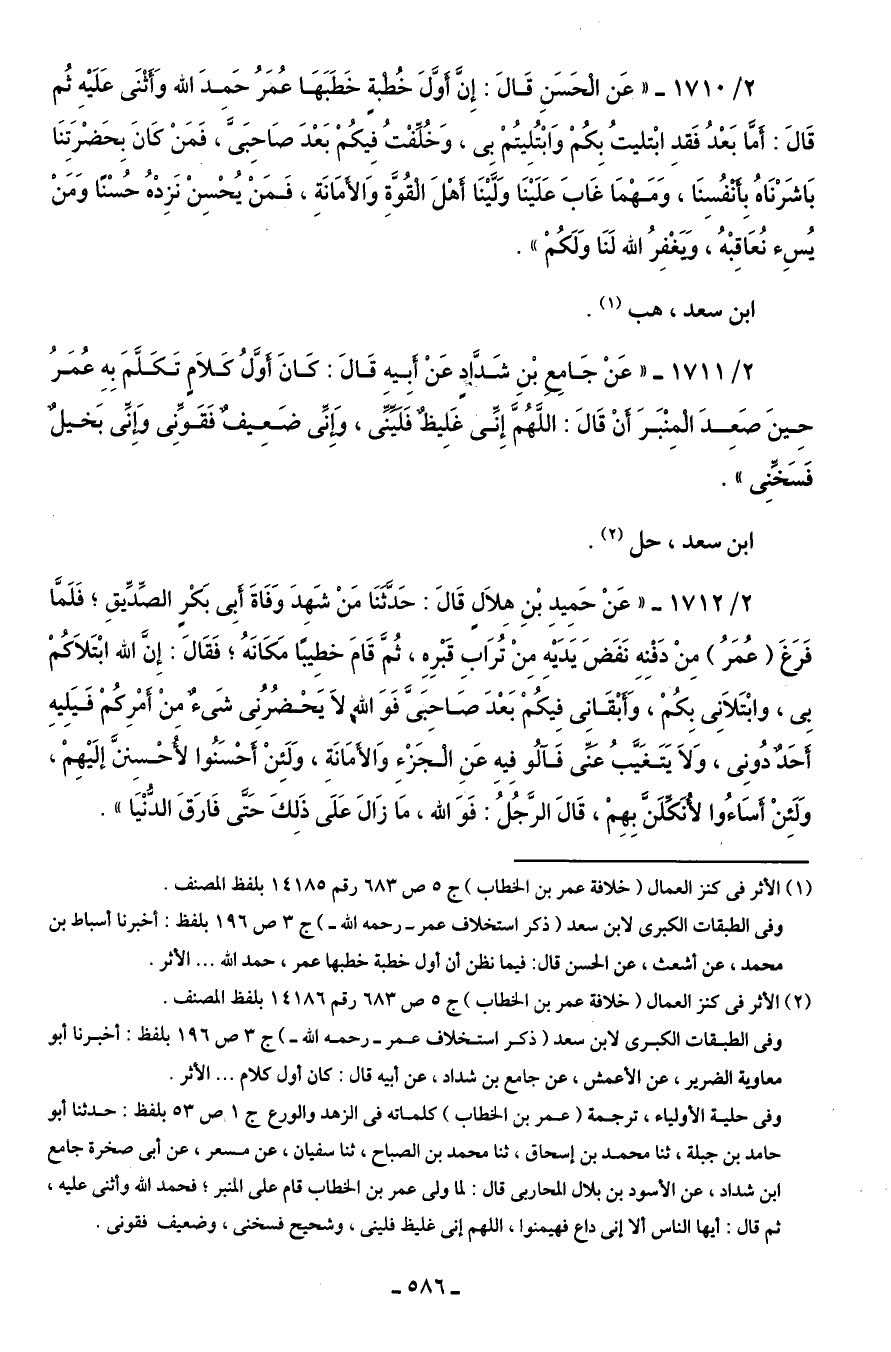 ٢/ ١٧١٠ ـ « عَن الْحَسَنِ قَـالَ : إنَّ أَوَّلَ خُطْبةٍ خَطَبَهَـا عُمَرُ حَمِـدَ الله وَأَثْنَى عَلَيْه ثُم
قَالَ : أَمَّا بَعْدُ فَقد ابْتليتُ بِكُمْ وَابْتُلِيتُم بِى ، وَخُلِّفْتُ فيكُمْ بَعْدَ صَاحِبَىَّ ، فَمَنْ كَانَ بِحَضْرَتِنَا
بَاشَرْنَاهُ بِأَنْفُسِنَا ، وَمَـهْمَا غَابَ عَلَيْنَا وَلَّيْنَا أَهْلَ الْقُوَّةِ وَالأَمَانَةِ ، فَـمَنْ يُحْسِنْ نَزِدْهُ حُسْنًا وَمَنْ
يُسِء نُعَاقِبْهُ ، وَيَغْفِرُ الله لَنَا وَلَكُمْ » .
ابن سعد ، هب (١) .
٢/ ١٧١١ ـ « عَنْ جَـامِعِ بْنِ شَـدَّادٍ عَنْ أَبِـيه قَـالَ : كَـانَ أَوَّلُ كَـلاَمٍ تَـكَـلَّمَ بِهِ عُمَـرُ
حِـينَ صَعِـدَ الْمِنْبَـرَ أَنْ قَالَ : اللَّهُمَّ إِنِّـى غَليظٌ فَلَيِّنِّى ، وَإِنِّى ضَـعِـيفٌ فَقَـوِّنِى وَإِنِّى بَخيـلٌ
فَسَخِّنِى » .
ابن سعد ، حل (٢) .
٢/ ١٧١٢ ـ « عَنْ حَمِيدِ بْنِ هِلاَلٍ قَالَ : حَدَّثَنَا مَنْ شَهِدَ وَفَاةَ أَبِى بَكْرٍ الصِّدِّيقِ ؛ فَلَمَّا
فَرَغَ ( عُمَرُ ) مِنْ دَفْنِه نَفَضَ يَدَيْهِ مِنْ تُرَابِ قَبْرِهِ ، ثُمَّ قَامَ خَطيبًا مَكَانَهُ ؛ فَقَالَ : إِنَّ الله ابْتَلاَكُمْ
بِى ، وابْتَلاَنِى بِكُمْ ، وَأَبْقَـانِى فيكُمْ بَعْدَ صَـاحِبَىَّ فَوَ اللهِ لاَ يَحْـضُرُنِى شَىءٌ مِنْ أَمْرِكُمْ فَـيَلِيهِ
أَحَدٌ دُونِى ، وَلاَ يَتَـغَيَّبُ عَنِّى فَـآلُو فيهِ عَنِ الْـجَزْءِ وَالأَمَانَةِ ، وَلَئِنْ أَحْسَنُوا لأُحْـسِنَنَّ إِلَيْهِمْ ،
وَلَئِنْ أَسَاءُوا لأُنَكِّلَنَّ بِهِمْ ، قَالَ الرَّجُلُ : فَوَ الله ، مَا زَالَ عَلَى ذَلِكَ حَتَّى فَارَقَ الدُّنْيَا » .
(١) الأثر فى كنز العمال ( خلافة عمر بن الخطاب ) ج ٥ ص ٦٨٣ رقم ١٤١٨٥ بلفظ المصنف .
وفى الطبقات الكبرى لابن سعد ( ذكر استخلاف عمر ـ رحمه الله ـ ) ج ٣ ص ١٩٦ بلفظ : أخبرنا أسباط بن
محمد ، عن أشعث ، عن الحسن قال: فيما نظن أن أول خطبة خطبها عمر ، حمد الله ... الأثر .
(٢) الأثر فى كنز العمال ( خلافة عمر بن الخطاب ) ج ٥ ص ٦٨٣ رقم ١٤١٨٦ بلفظ المصنف .
وفى الطبـقات الكبـرى لابن سعد ( ذكـر استـخلاف عـمر ـ رحمـه الله ـ ) ج ٣ ص ١٩٦ بلفظ : أخبـرنا أبو
معاوية الضرير ، عن الأعمش ، عن جامع بن شداد ، عن أبيه قال : كان أول كلام ... الأثر .
وفى حلية الأولياء ، ترجمة ( عـمر بن الخطاب ) كلماته فى الزهد والورع ج ١ ص ٥٣ بلفظ : حـدثنا أبو
حامد بن جبلة ، ثنا محمـد بن إسحاق ، ثنا محمد بن الصباح ، ثنا سفيان ، عن مسعر ، عن أبى صخرة جامع
ابن شداد ، عن الأسود بن بلال المحاربى قال : لما ولى عمر بن الخطاب قام على المنبر ؛ فحمد الله وأثنى عليه ،
ثم قال : أيها الناس ألا إنى داع فهيمنوا ، اللهم إنى غليظ فلينى ، وشحيح فسخنى ، وضعيف فقونى .
ـ ٥٨٦ ـ